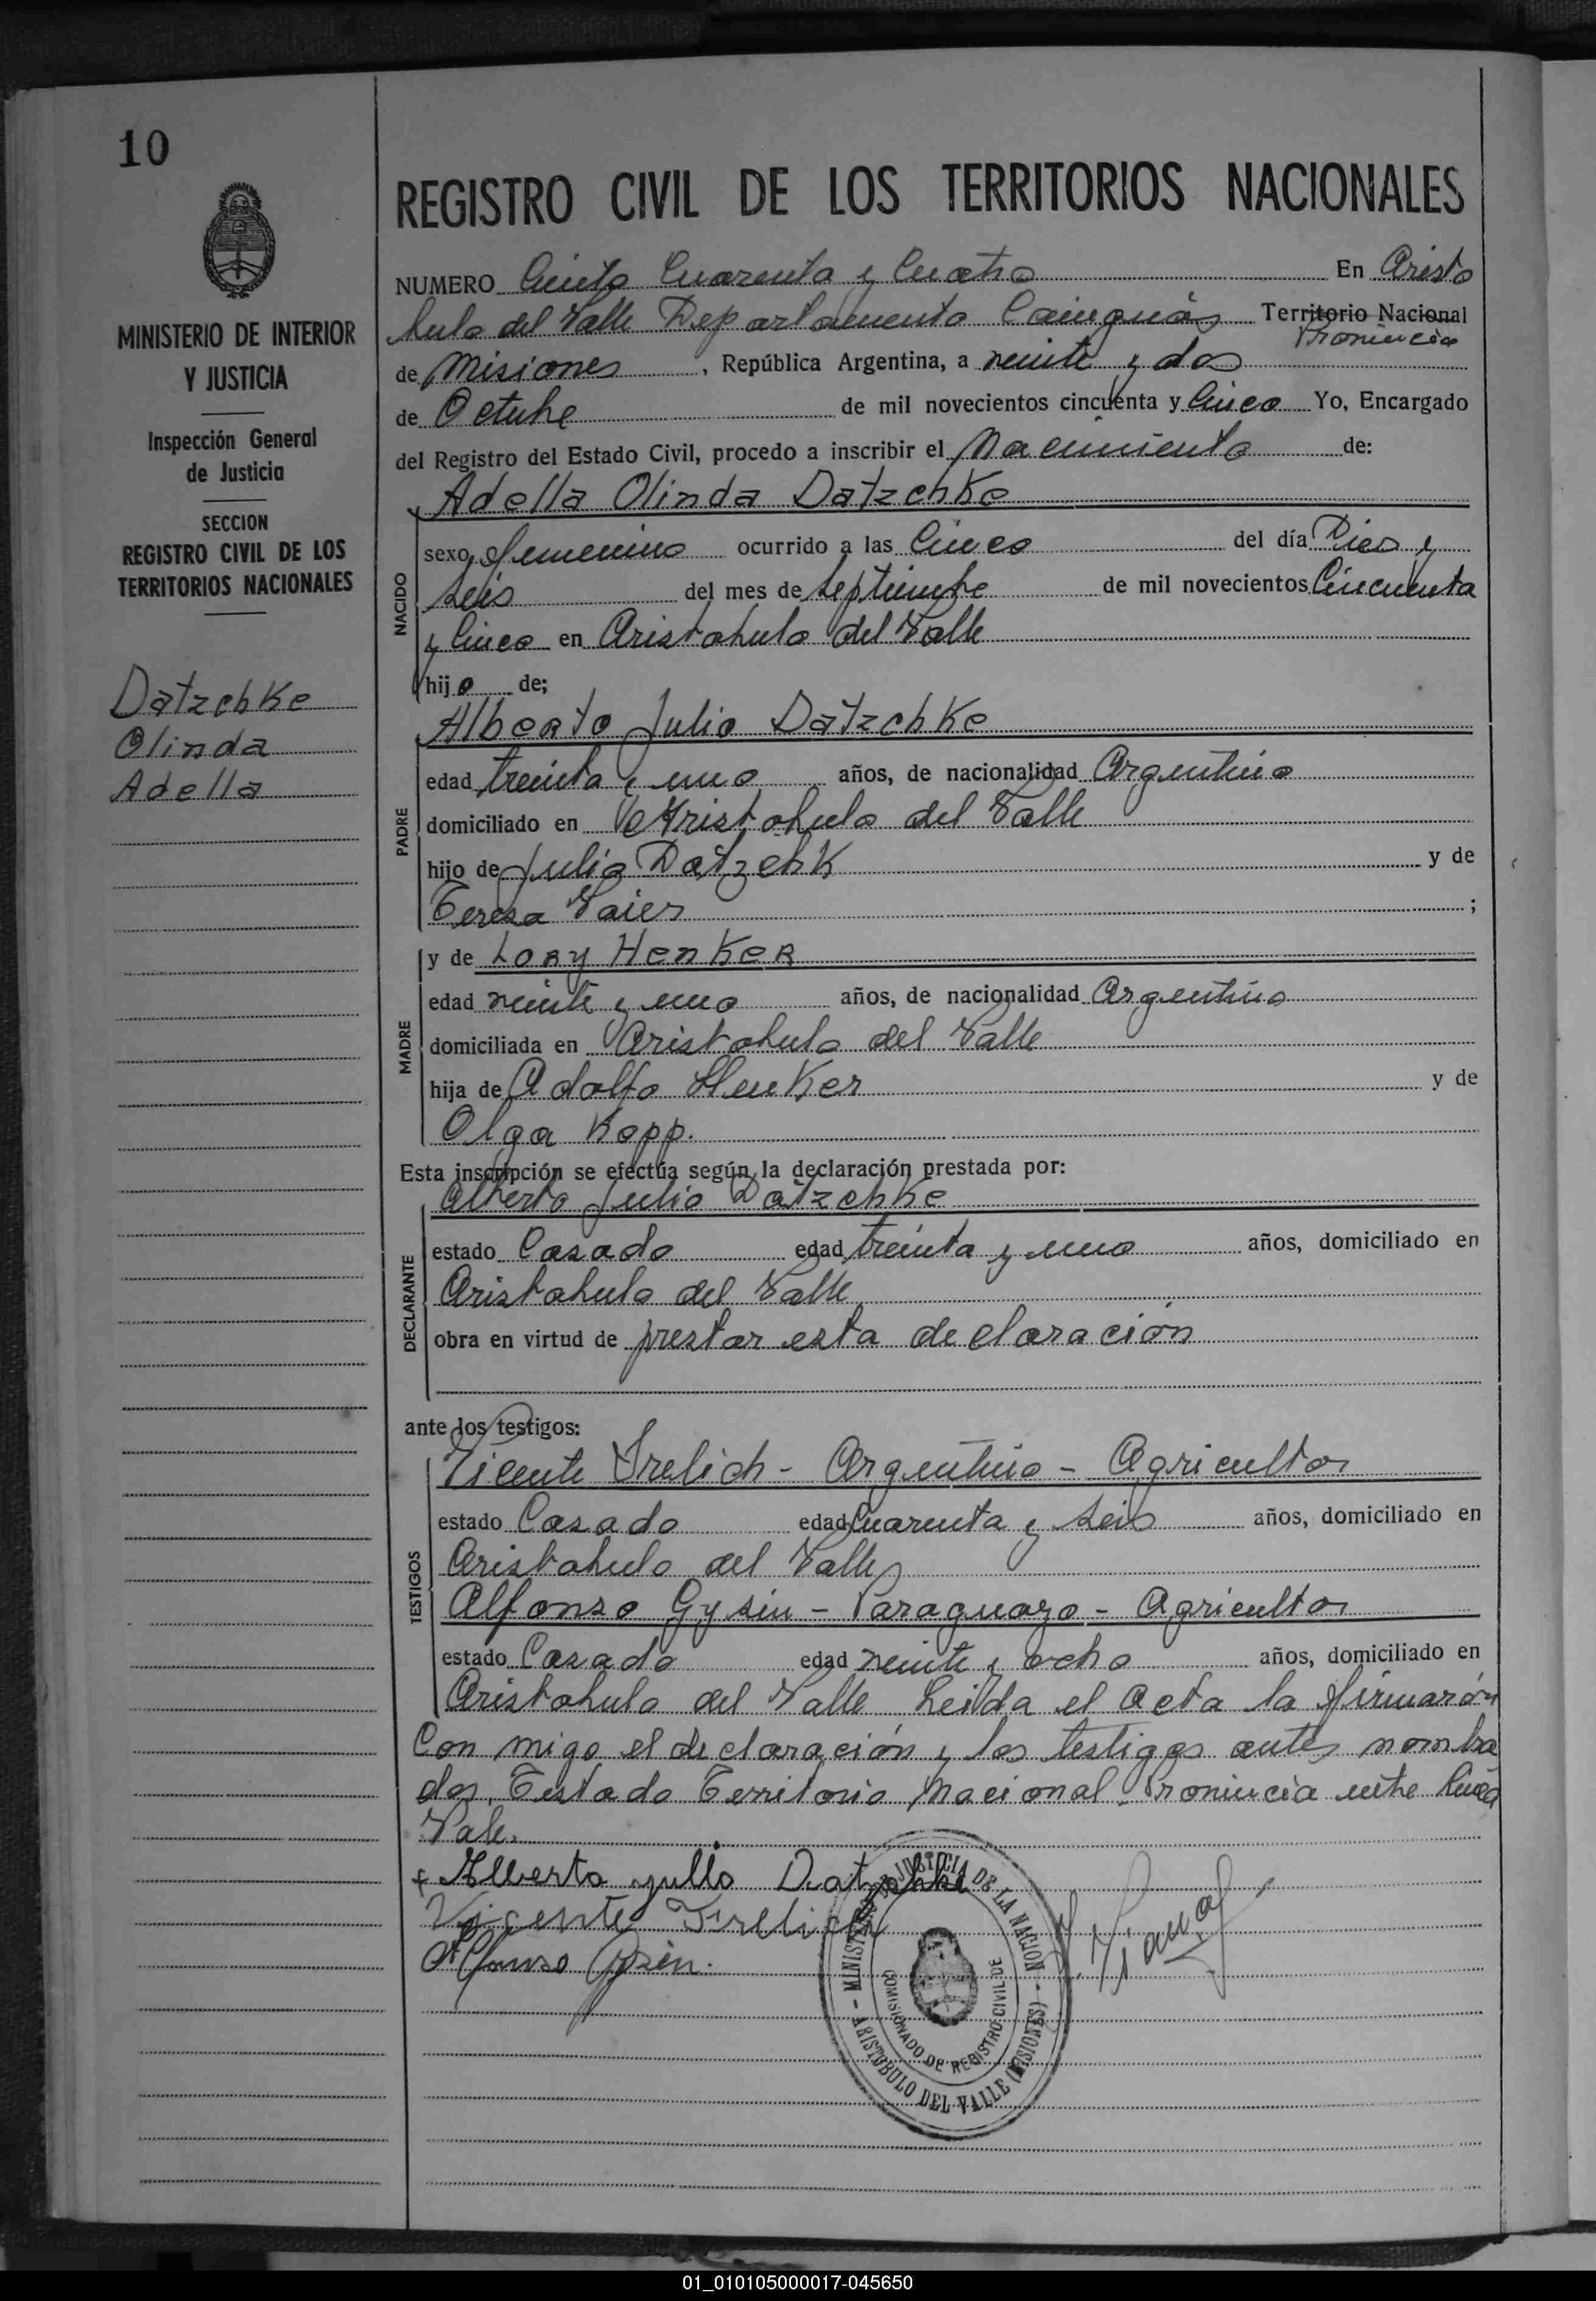 10
MINISTERIO DE INTERIOR
Y JUSTICIA
Inspección General
de Justicia
SECCION
REGISTRO CIVIL DE LOS
TERRITORIOS NACIONALES
Datzchke
Olinda
Adella
REGISTRO CIVIL DE LOS TERRITORIOS NACIONALES
NUMERO Ciento Cuarenta y Cuatro En Aristo
bulo del Valle Departamento Cainguás Territorio Nacional
Provincia
de Misiones, República Argentina, a veinte y dos
de Octubre de mil novecientos cincuenta y Cinco Yo, Encargado
del Registro del Estado Civil, procedo a inscribir el Nacimiento de:
Adella Olinda Datzchke
NACIDO
sexo femenino ocurrido a las Cinco del día Diez y
seis del mes de Septiembre de mil novecientos Cincuenta
y Cinco en Aristobulo del Valle
hijo de;
Alberto Julio Datzchke
PADRE
edad treinta y uno años, de nacionalidad Argentino
domiciliado en Aristobulo del Valle
hijo de Julio Datzchk y de
Teresa Vaier ;
MADRE
y de Lory Henker
edad veinte y uno años, de nacionalidad Argentino
domiciliada en Aristobulo del Valle
hija de Adolfo Henker y de
Olga Kopp.
Esta inscripción se efectúa según la declaración prestada por:
Alberto Julio Datzchke
DECLARANTE
estado Casado edad treinta y uno años, domiciliado en
Aristobulo del Valle
obra en virtud de prestar esta declaración
ante los testigos:
TESTIGOS
Vicente Frelich - Argentino - Agricultor
estado Casado edad Cuarenta y Seis años, domiciliado en
Aristobulo del Valle
Alfonso Gysin - Paraguayo - Agricultor
estado Casado edad veinte y ocho años, domiciliado en
Aristobulo del Valle Leida el acta la firmarón
Con migo el declaración y los testigos antes nombra
dos, Testado Territorio Nacional. Provincia entre linea
Vale.
Alberto Jullo Datzchke
Vicente Frelich
Alfonso Gysin.
MINISTERIO DE JUSTICIA DE LA NACION
COMISIONADO DE REGISTRO CIVIL DE
ARISTOBULO DEL VALLE (MISIONES)
01_010105000017-045650